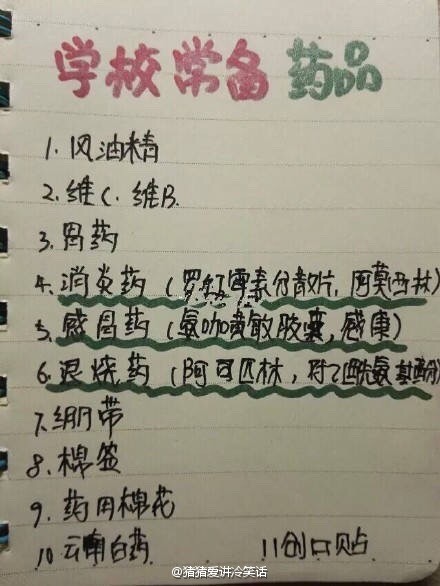 学校常备药品
1. 风油精
2. 维C. 维B.
3. 胃药
4. 消炎药 (罗红霉素分散片, 阿莫西林)
5. 感冒药 (氨咖黄敏胶囊, 感康)
6. 退烧药 (阿司匹林, 对乙酰氨基酚)
7. 绷带
8. 棉签
9. 药用棉花
10 云南白药 11创口贴
@猪猪爱讲冷笑话